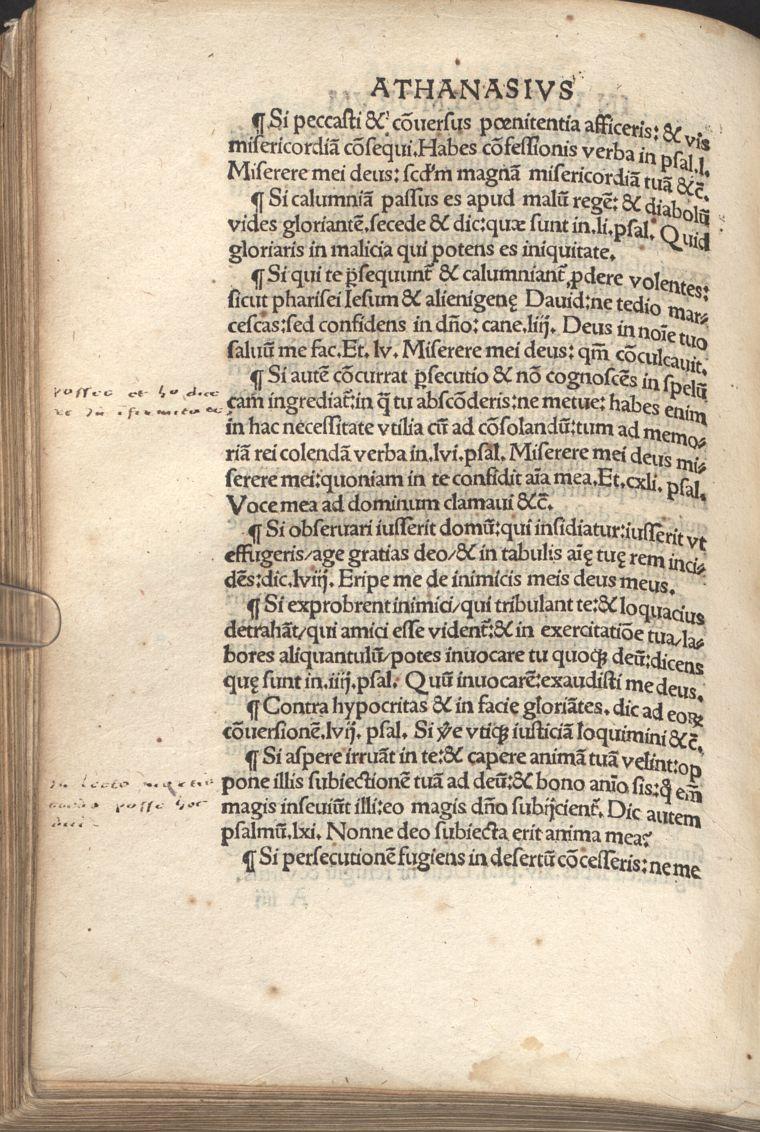 ATHANASIVS
¶ Si peccasti & cōuersus pœnitentia afficeris: & vis
misericordiā cōsequi. Habes cōfessionis verba in psal. l.
Miserere mei deus: scd'm magnā misericordiā tuā &c̄.
¶ Si calumniā passus es apud malū regē: & diabolū
vides gloriantē, secede & dic: quæ sunt in. li. psal. Quid
gloriaris in malicia qui potens es iniquitate.
¶ Si qui te p̄sequunt̄ & calumniant̄, ꝓdere volentes:
sicut pharisei Iesum & alienigenę Dauid: ne tedio mar⸗
cescas: sed confidens in dn̄o: cane. liij. Deus in noīe tuo
saluū me fac. Et. lv. Miserere mei deus: qm̄ cōculcauit.
¶ Si autē cōcurrat ꝑsecutio & nō cognoscēs in spelū
cam ingrediat̄: in q̄ tu abscōderis: ne metue: habes enim
in hac necessitate vtilia cū ad cōsolandū: tum ad memo⸗
riā rei colendā verba in. lvi. psal. Miserere mei deus mi⸗
serere mei: quoniam in te confidit aīa mea. Et. cxli. psal.
Voce mea ad dominum clamaui &c̄.
¶ Si obseruari iusserit domū: qui insidiatur: iusserit vt
effugeris/ age gratias deo/ & in tabulis aię tuę rem inci⸗
dēs: dic. lviij. Eripe me de inimicis meis deus meus.
¶ Si exprobrent inimici/ qui tribulant te: & loquacius
detrahāt/ qui amici esse vident̄: & in exercitatiōe tua/ la⸗
bores aliquantulū/ potes inuocare tu quoqꝫ deū: dicens
quę sunt in. iiij. psal. Quū inuocarē: exaudisti me deus.
¶ Contra hypocritas & in facie gloriātes. dic ad eoꝝ
cōuersionē. lvij. psal. Si v̄e vtiqꝫ iusticiā loquimini &c̄.
¶ Si aspere irruāt in te: & capere animā tuā velint: op
pone illis subiectionē tuā ad deū: & bono anīo sis: q̄ em̄
magis inseuiūt illi: eo magis dn̄o subijcient̄. Dic autem
psalmū. lxi. Nonne deo subiecta erit anima mea?
¶ Si persecutionē fugiens in desertū cōcesseris: ne me